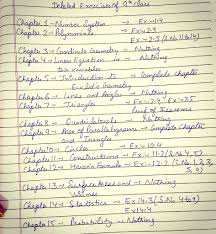 Deleted Exercises of 9th class
Chapter 1 - Number System → Ex - 1.4
Chapter 2 - Polynomials → Ex - 2.3
Ex - 2.5
Chapter 3 - Coordinate Geometry → Nothing
Chapter 4 - Linear Equation in two variables → Nothing
Chapter 5 - Introduction to Euclid's Geometry → Complete chapter
Chapter 6 - Lines and Angles → Nothing
Chapter 7 - Triangles → Ex - 7.4, Ex - 7.5
Chapter 8 - Quadrilaterals → Nothing
Chapter 9 - Area of Parallelograms and Triangles → Complete chapter
Chapter 10 - Circles → Ex - 10.4
Chapter 11 - Constructions → Ex - 11.2 (S.No 4, 5)
Chapter 12 - Heron's Formula → Ex - 12.2 (S.No 1, 2, 3,
Chapter 13 - Surface Areas and Volumes → Nothing
Chapter 14 - Statistics → Ex 14.3
Ex 14.4
Chapter 15 - Probability → Nothing